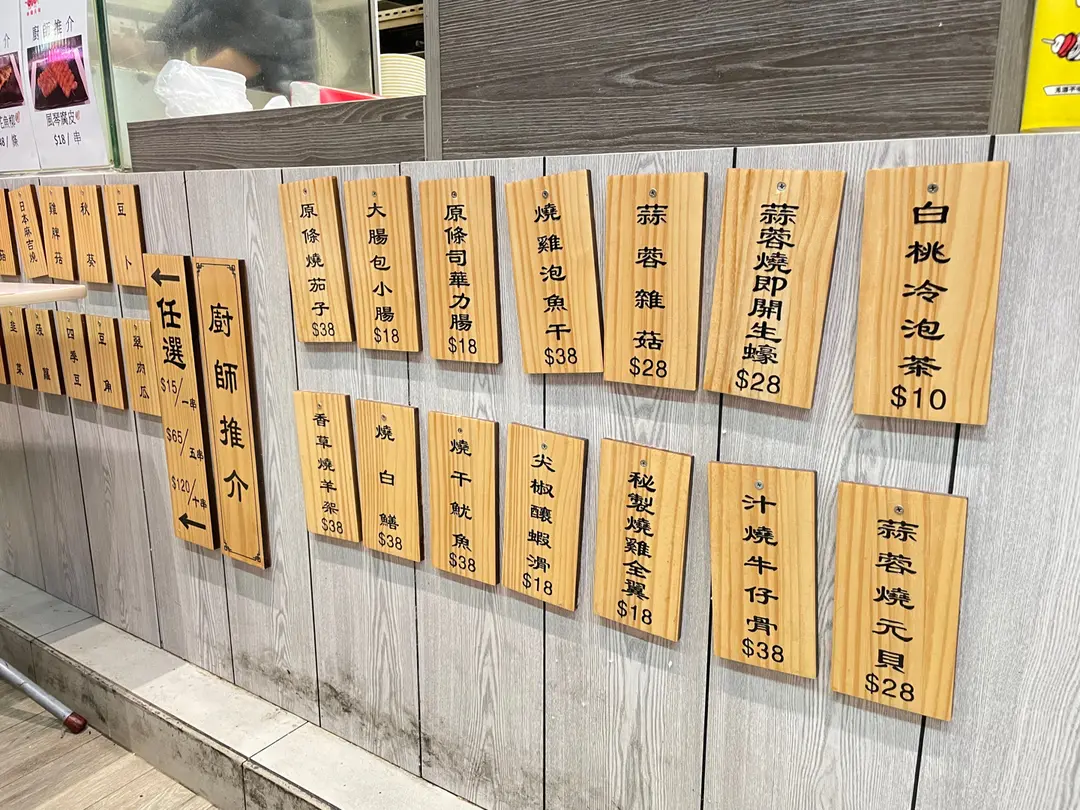 廚師推介
風琴腐皮
$18/串
日本麻吉燒
雞脾菇
秋葵
豆卜
韭菜
菠蘿
四季豆
豆角
翠肉瓜
任選
$15/一串
$65/五串
$120/十串
廚師推介
原條燒茄子
$38
大腸包小腸
$18
原條司華力腸
$18
燒雞泡魚干
$38
蒜蓉雜菇
$28
蒜蓉燒即開生蠔
$28
白桃冷泡茶
$10
香草燒羊架
$38
燒白鱔
$38
燒干魷魚
$38
尖椒釀蝦滑
$18
秘製燒雞全翼
$18
汁燒牛仔骨
$38
蒜蓉燒元貝
$28